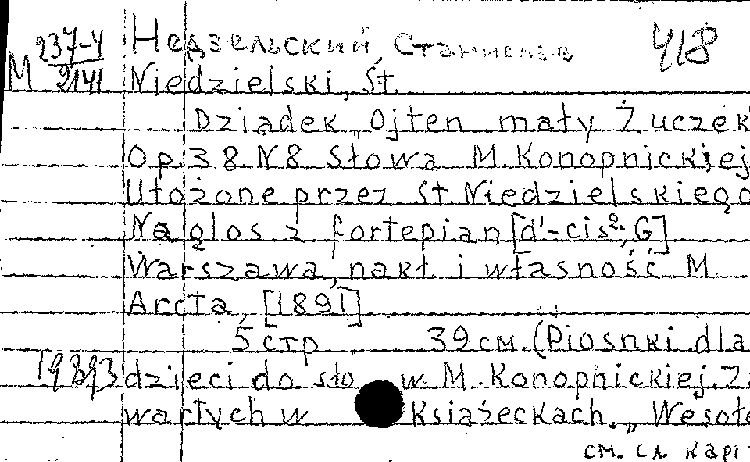 Недзельский, Станислав 418
М 237-4/2141 Niedzielski, St.
Dziadek „Ojten mały Żuczek
Op. 38. N 8. Słowa M. Konopnickiej
Ułożone przez St. Niedzielskiego
Na głos z fortepian [d'-cis²; G]
Warszawa, nakł i własność M.
Arcta, [1891]
5 стр 39 см. (Piosnki dla
19393 dzieci do sło w M. Konopnickiej. Za
wartych w Książeckach. „Wesołe
см. сл. карт